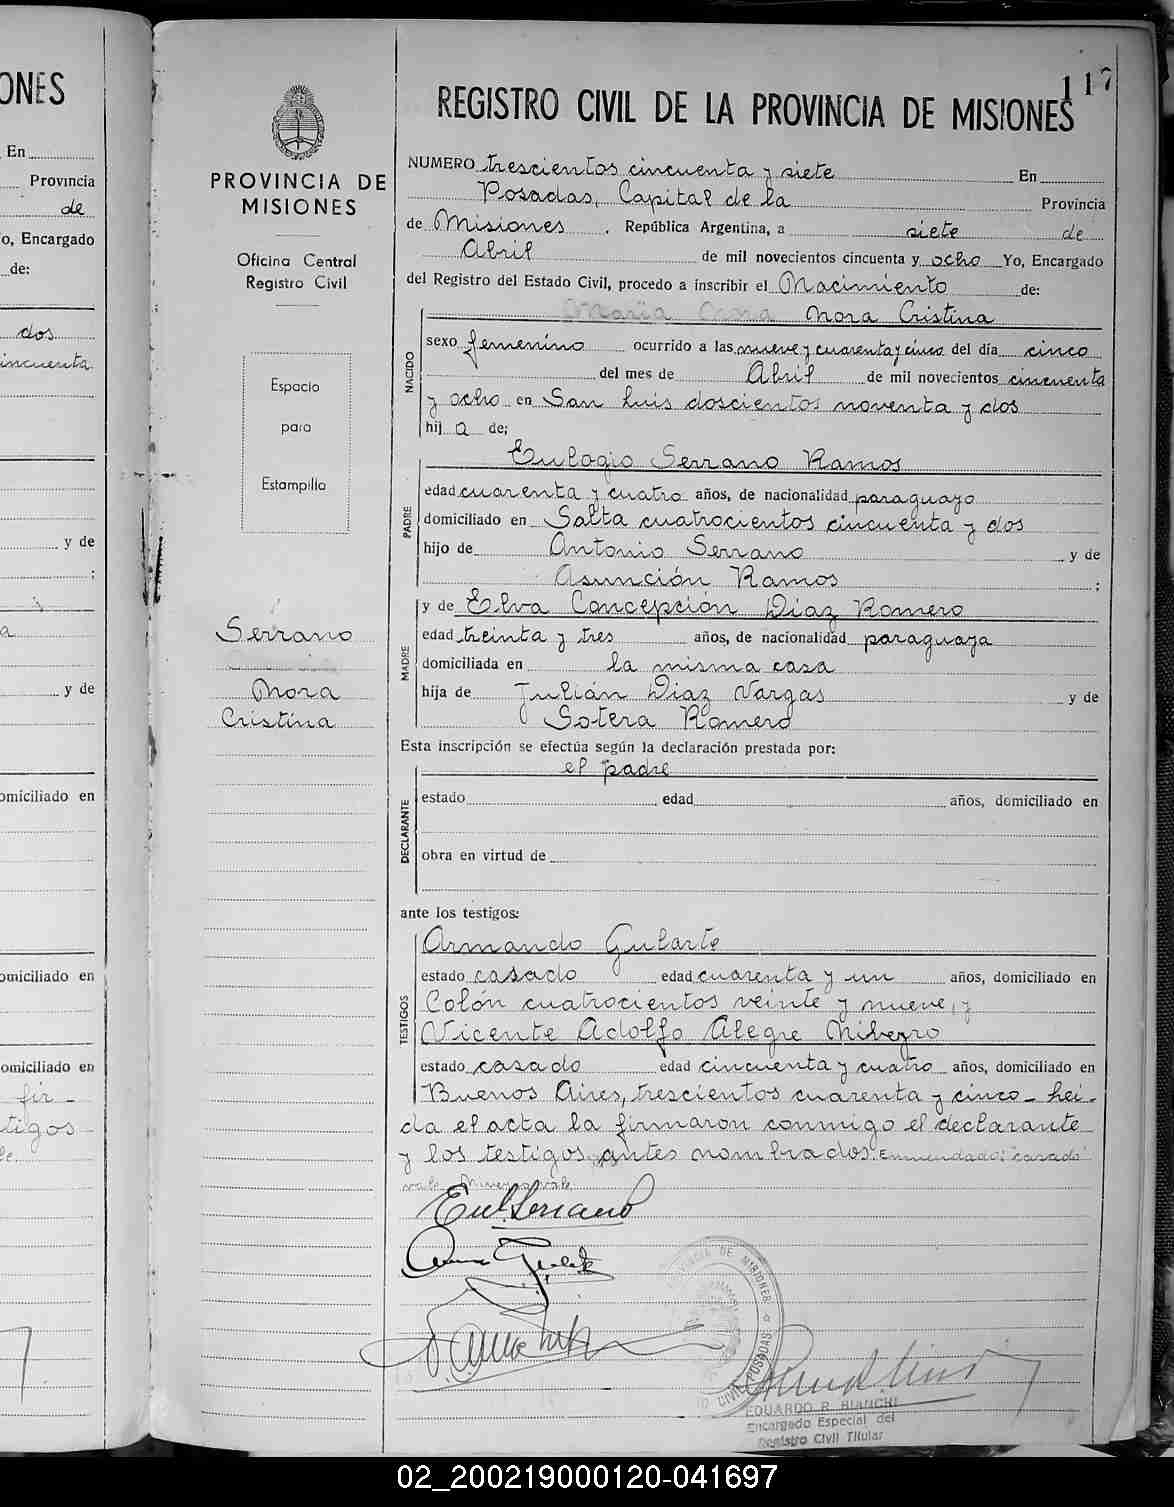 ONES
En
Provincia
de
o, Encargado
de:
dos
incuenta
y de
;
a
y de
omiciliado en
omiciliado en
omiciliado en
fir-
tigos
PROVINCIA DE
MISIONES
Oficina Central
Registro Civil
Espacio
para
Estampilla
Serrano
Nora
Cristina
117
REGISTRO CIVIL DE LA PROVINCIA DE MISIONES
NUMERO trescientos cincuenta y siete En
Posadas, Capital de la Provincia
de Misiones . República Argentina, a siete de
Abril de mil novecientos cincuenta y ocho Yo, Encargado
del Registro del Estado Civil, procedo a inscribir el Nacimiento de:
Nora Cristina
NACIDO
sexo femenino ocurrido a las nueve y cuarenta y cinco del día cinco
del mes de Abril de mil novecientos cincuenta
y ocho en San Luis doscientos noventa y dos
hij a de;
Eulogio Serrano Ramos
PADRE
edad cuarenta y cuatro años, de nacionalidad paraguayo
domiciliado en Salta cuatrocientos cincuenta y dos
hijo de Antonio Serrano y de
Asunción Ramos ;
y de Elva Concepción Diaz Romero
MADRE
edad treinta y tres años, de nacionalidad paraguaya
domiciliada en la misma casa
hija de Julián Diaz Vargas y de
Sotera Romero
Esta inscripción se efectúa según la declaración prestada por:
el padre
DECLARANTE
estado edad años, domiciliado en
obra en virtud de
ante los testigos:
TESTIGOS
Armando Gularte
estado casado edad cuarenta y un años, domiciliado en
Colón cuatrocientos veinte y nueve, y
Vicente Adolfo Alegre
estado casado edad cincuenta y cuatro años, domiciliado en
Buenos Aires, trescientos cuarenta y cinco - leí-
da el acta la firmaron conmigo el declarante
y los testigos antes nombrados. Enmendado: "casado"
vale
Eul Serrano
PROVINCIA DE MISIONES
CIVIL POSADAS
EDUARDO R. BIANCHI
Encargado Especial del
Registro Civil Titular
02_200219000120-041697